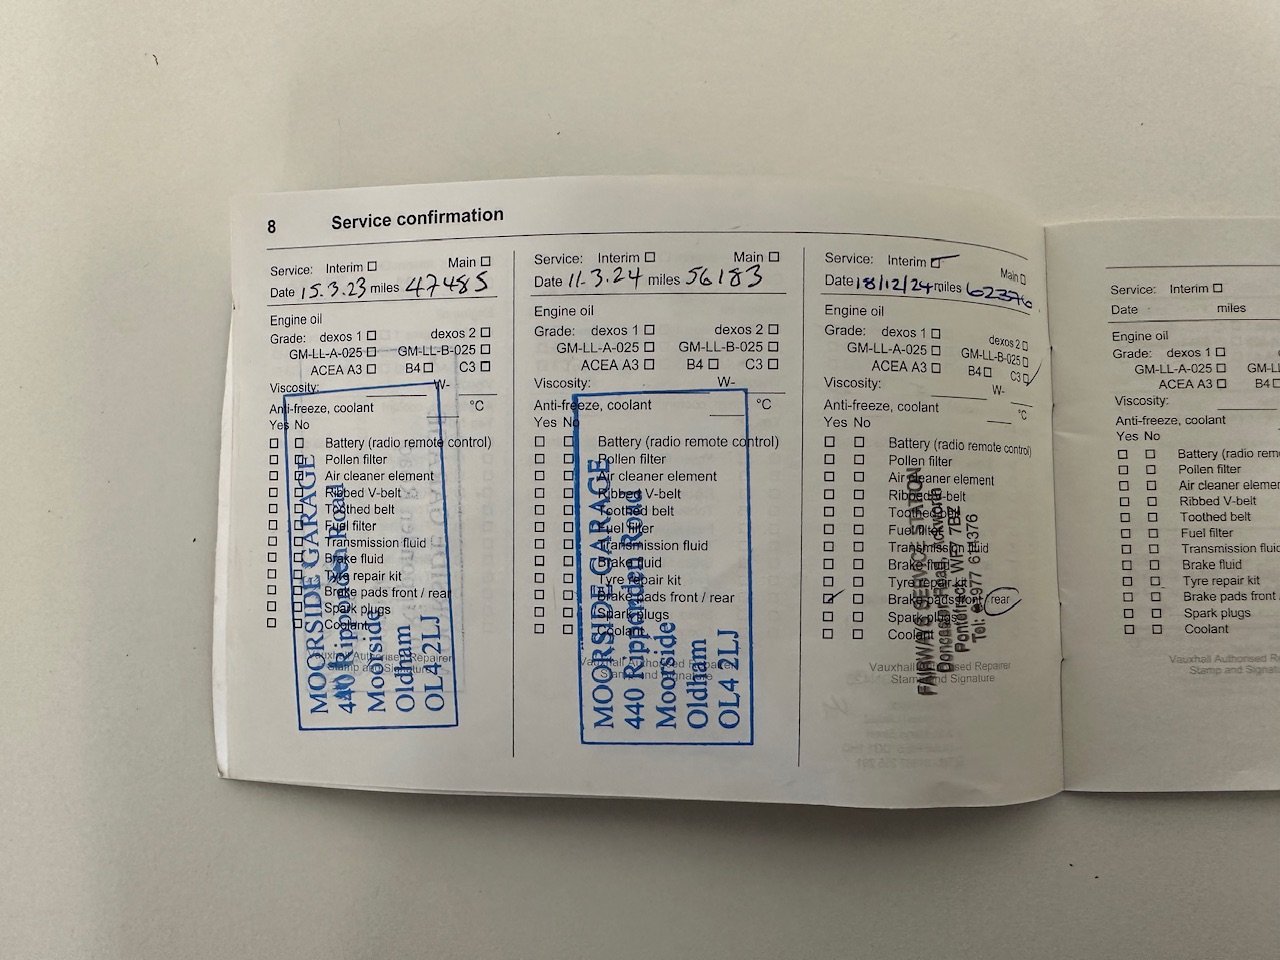 8 Service confirmation
Service: Interim Main
Date 15.3.23 miles 47485
Engine oil
Grade: dexos 1 dexos 2
GM-LL-A-025 GM-LL-B-025
ACEA A3 B4 C3
Viscosity: W-
Anti-freeze, coolant °C
Yes No
Battery (radio remote control)
Pollen filter
Air cleaner element
Ribbed V-belt
Toothed belt
Fuel filter
Transmission fluid
Brake fluid
Tyre repair kit
Brake pads front / rear
Spark plugs
Coolant
Vauxhall Authorised Repairer
Stamp and Signature
MOORSIDE GARAGE
440 Ripponden Road
Moorside
Oldham
OL4 2LJ
Service: Interim Main
Date 11.3.24 miles 56183
Engine oil
Grade: dexos 1 dexos 2
GM-LL-A-025 GM-LL-B-025
ACEA A3 B4 C3
Viscosity: W-
Anti-freeze, coolant °C
Yes No
Battery (radio remote control)
Pollen filter
Air cleaner element
Ribbed V-belt
Toothed belt
Fuel filter
Transmission fluid
Brake fluid
Tyre repair kit
Brake pads front / rear
Spark plugs
Coolant
Vauxhall Authorised Repairer
Stamp and Signature
MOORSIDE GARAGE
440 Ripponden Road
Moorside
Oldham
OL4 2LJ
Service: Interim Main
Date 18/12/24 miles 62376
Engine oil
Grade: dexos 1 dexos 2
GM-LL-A-025 GM-LL-B-025
ACEA A3 B4 C3
Viscosity: W-
Anti-freeze, coolant °C
Yes No
Battery (radio remote control)
Pollen filter
Air cleaner element
Ribbed V-belt
Toothed belt
Fuel filter
Transmission fluid
Brake fluid
Tyre repair kit
Brake pads front / rear
Spark plugs
Coolant
Vauxhall Authorised Repairer
Stamp and Signature
FAIRWAY SERVICE STATION
Doncaster Road, Ackworth
Pontefract WF7 7BZ
Tel: 01977 611376
Service: Interim
Date miles
Engine oil
Grade: dexos 1
GM-LL-A-025 GM-LL
ACEA A3 B4
Viscosity:
Anti-freeze, coolant
Yes No
Battery (radio rem
Pollen filter
Air cleaner element
Ribbed V-belt
Toothed belt
Fuel filter
Transmission fluid
Brake fluid
Tyre repair kit
Brake pads front /
Spark plugs
Coolant
Vauxhall Authorised R
Stamp and Signat